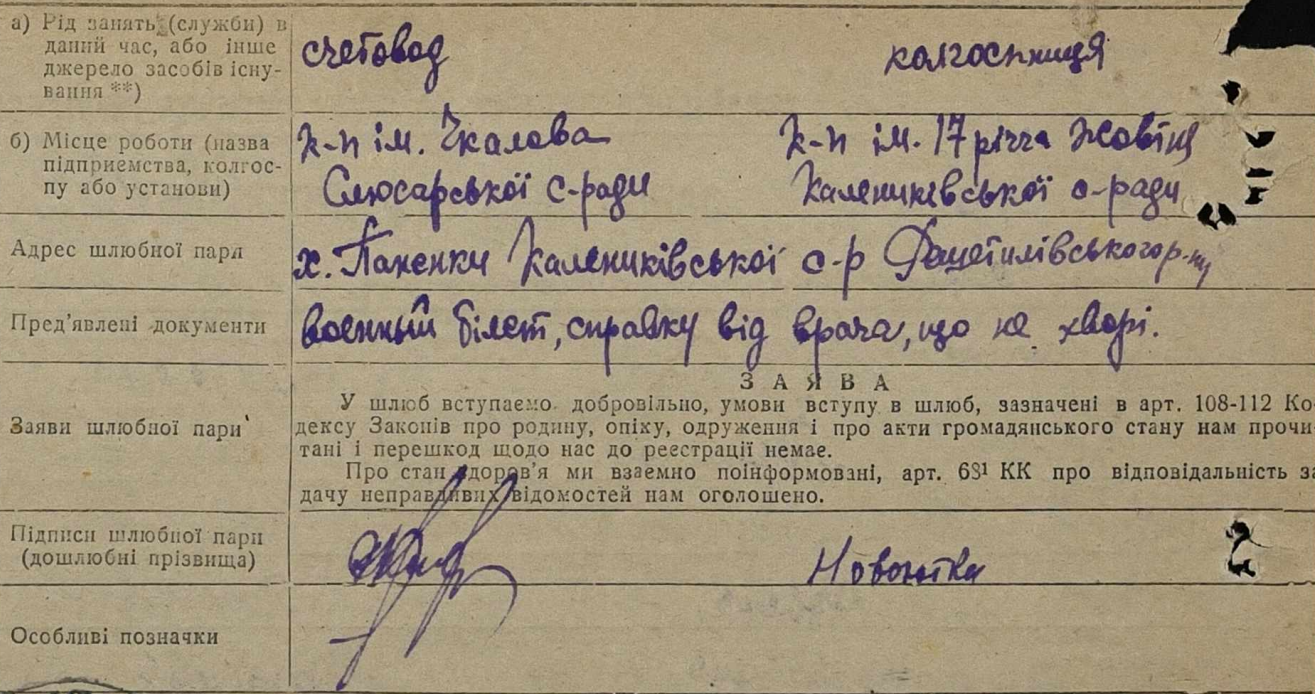 а) Рід занять (служби) в
даний час, або інше
джерело засобів існу-
вання **)
счетовод колгоспниця
б) Місце роботи (назва
підприємства, колгос-
пу або установи)
к-п ім. Чкалова к-п ім. 17 річча Жовтня
Слюсарської с-ради Калениківської с-ради
Адрес шлюбної пари
х. Паненки Калениківської с-р Решетилівського р-ну
Пред’явлені документи
военный білет, справку від врача, що не хворі.
ЗАЯВА
Заяви шлюбної пари
У шлюб вступаємо добровільно, умови вступу в шлюб, зазначені в арт. 108-112 Ко-
дексу Законів про родину, опіку, одруження і про акти громадянського стану нам прочи-
тані і перешкод щодо нас до реєстрації немає.
Про стан здоров’я ми взаємно поінформовані, арт. 68¹ КК про відповідальність за
дачу неправдивих відомостей нам оголошено.
Підписи шлюбної пари
(дошлюбні прізвища)
Особливі позначки